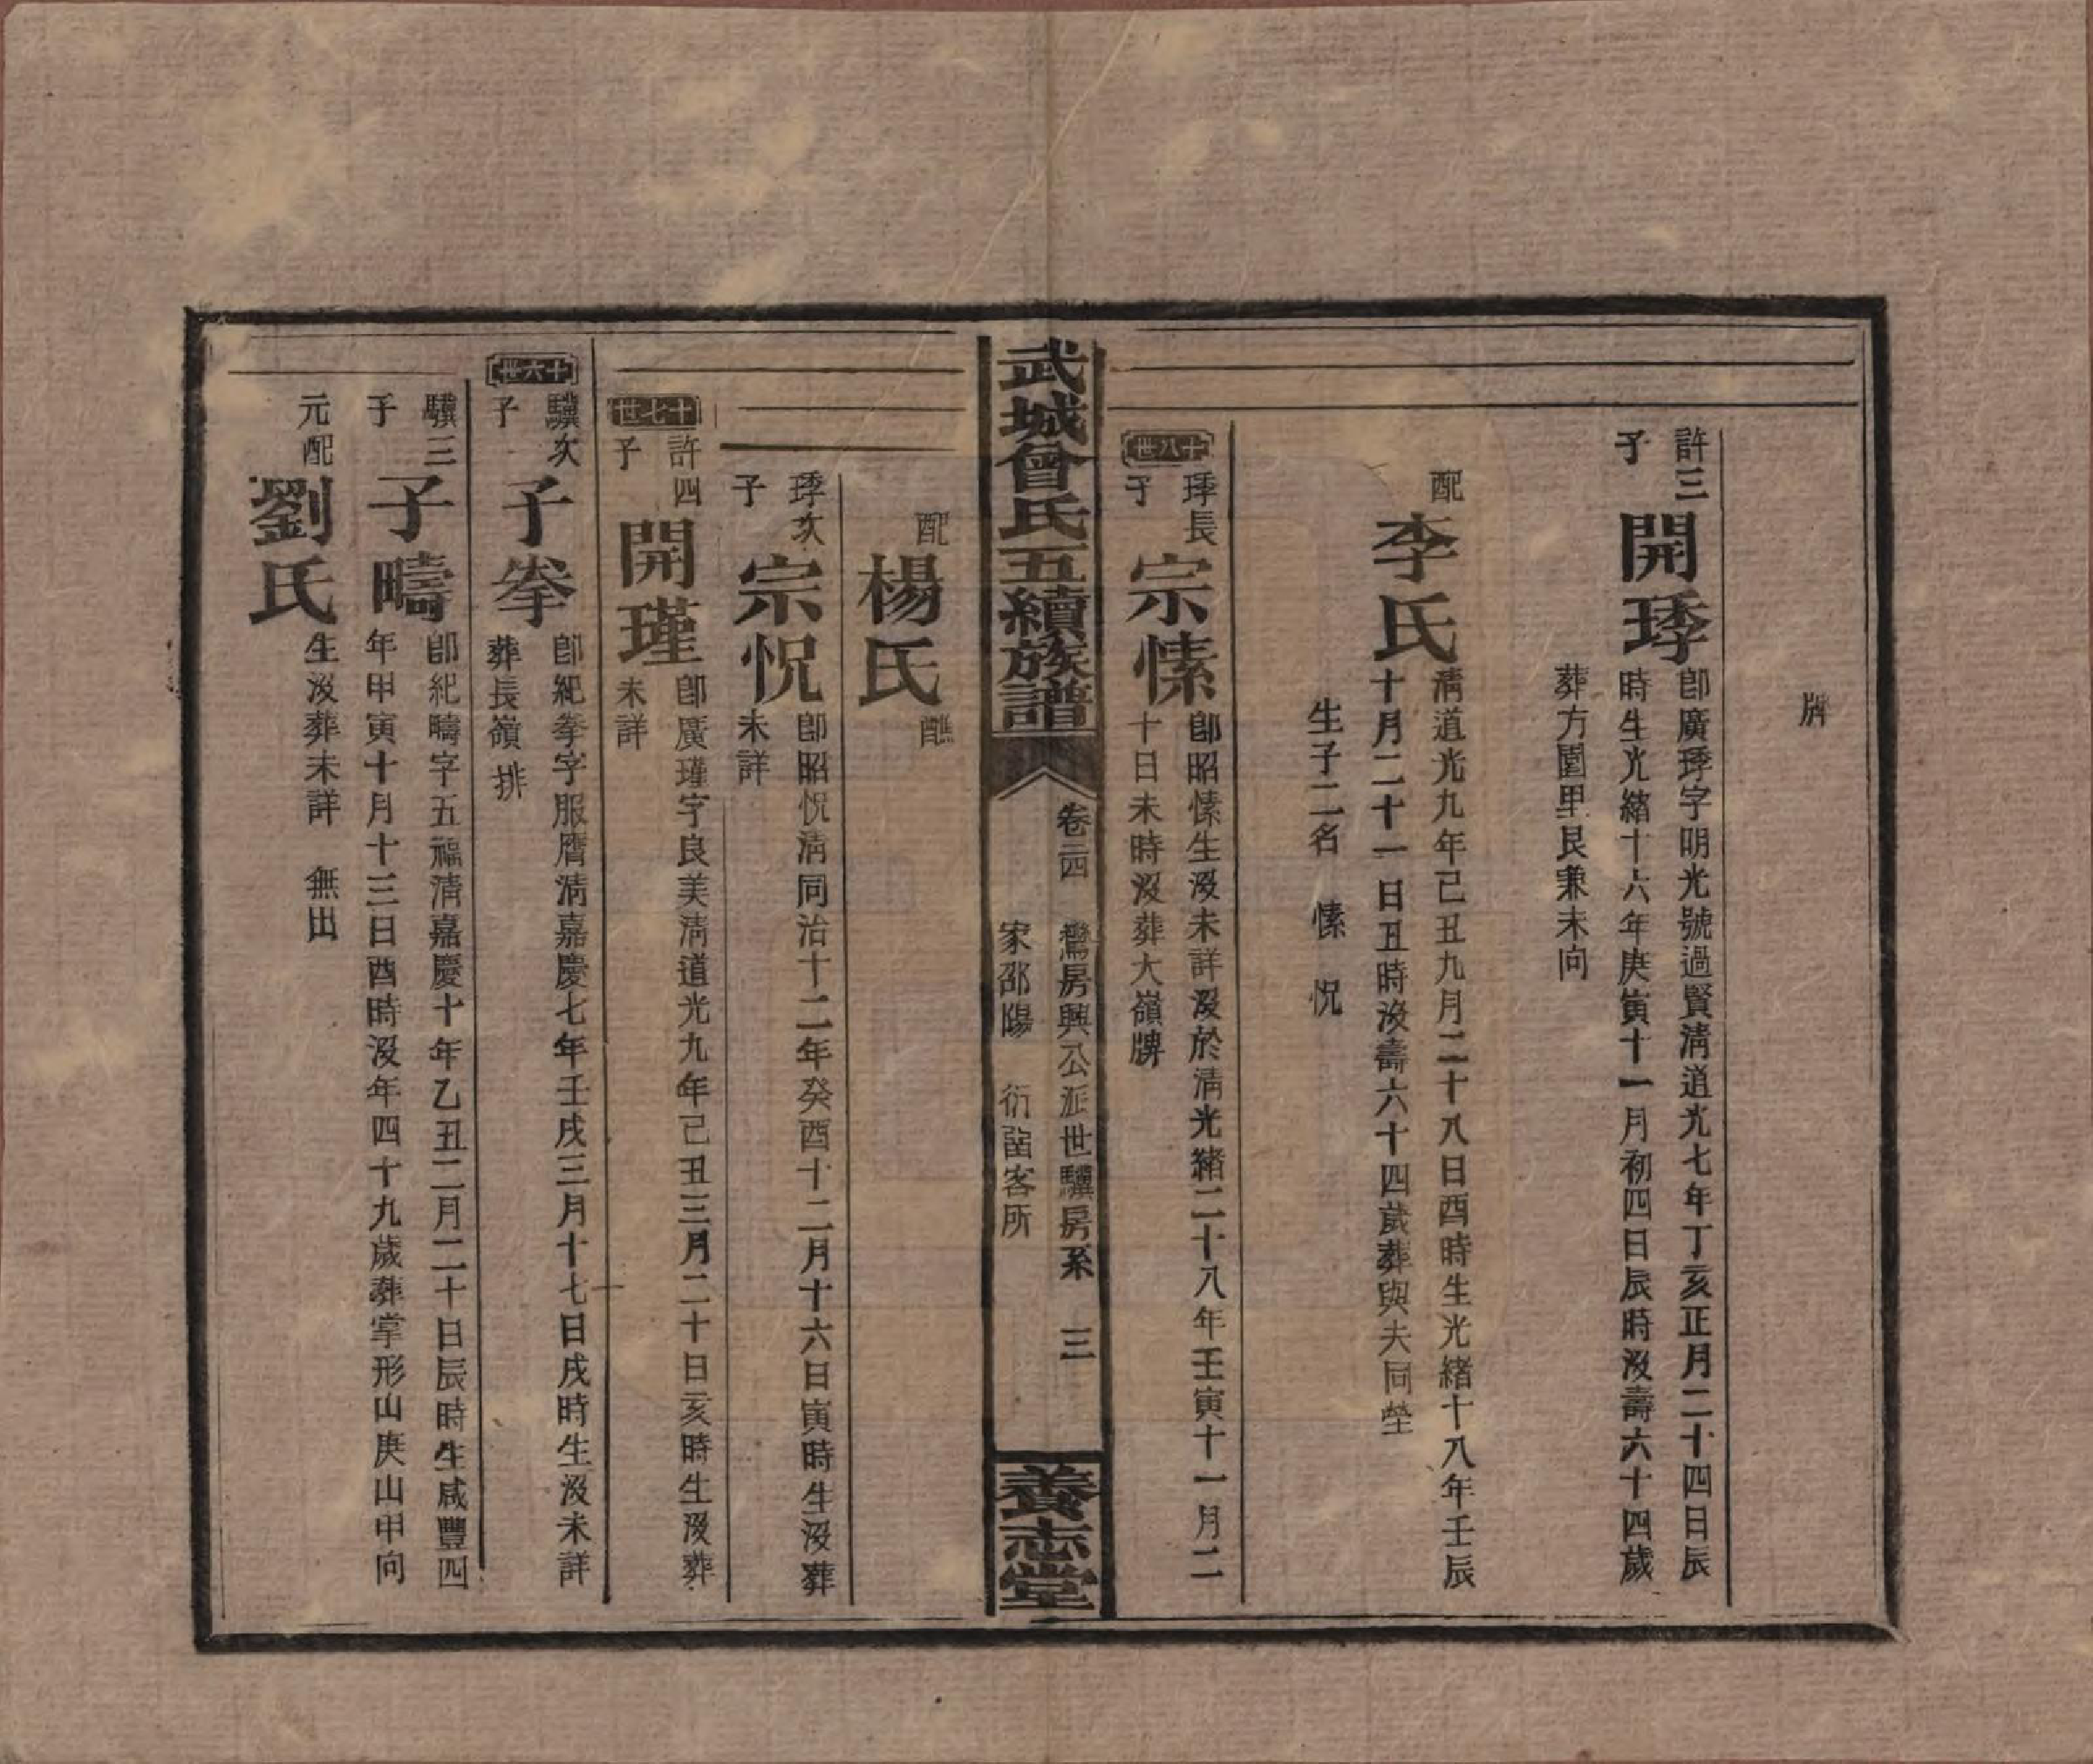 牌
許三子
開㻑
卽廣㻑字明光號過賢淸道光七年丁亥正月二十四日辰
時生光緒十六年庚寅十一月初四日辰時沒壽六十四歲
葬方園里艮兼未向
配
李氏
淸道光九年己丑九月二十八日酉時生光緒十八年壬辰
十月二十一日丑時沒壽六十四歲葬與夫同塋
生子二名 愫 怳
十八世
㻑長子
宗愫
卽昭愫生沒未詳沒於淸光緒二十八年壬寅十一月二
十日未時沒葬大嶺牌
武城曾氏五續族譜
卷二四 鶯房興公派世驥房系 三
家邵陽 衍 客所
養志堂
配
楊氏
醮
㻑次子
宗怳
卽昭怳淸同治十二年癸酉十二月十六日寅時生沒葬
未詳
十七世
許四子
開瑾
卽廣瑾字良美淸道光九年己丑三月二十日亥時生沒葬
未詳
十六世
驥次子
子拳
卽紀拳字服膺淸嘉慶七年壬戌三月十七日戌時生沒未詳
葬長嶺排
驥三子
子疇
卽紀疇字五福淸嘉慶十年乙丑二月二十日辰時生咸豐四
年甲寅十月十三日酉時沒年四十九歲葬掌形山庚山甲向
元配
劉氏
生沒葬未詳 無出